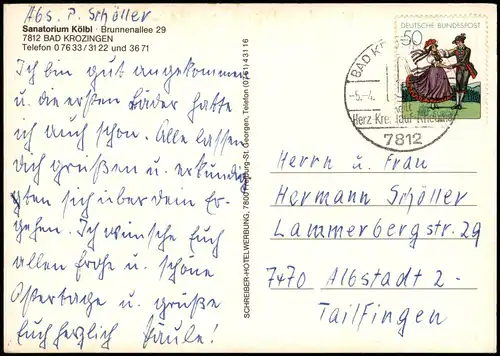 Abs. P. Schöller
Sanatorium Kölbl · Brunnenallee 29
7812 BAD KROZINGEN
Telefon 0 76 33 / 31 22 und 36 71
Ich bin gut angekommen
u. die ersten Bäder hatte
ich auch schon. Alle lassen
dich grüßen u. erkundig
ten sich über dein Er-
gehen. Ich wünsche Euch
allen frohe u. schöne
Ostertage u. grüße
Euch herzlich Paule!
SCHREIBER-HOTELWERBUNG, 7800 Freiburg-St. Georgen, Telefon (0761) 4 31 16
DEUTSCHE BUNDESPOST
50
BAD KRO
-5.-4.
Herz-Kreislauf-Rheuma
7812
Herrn u. Frau
Hermann Schöller
Lammerbergstr. 29
7470 Albstadt 2-
Tailfingen